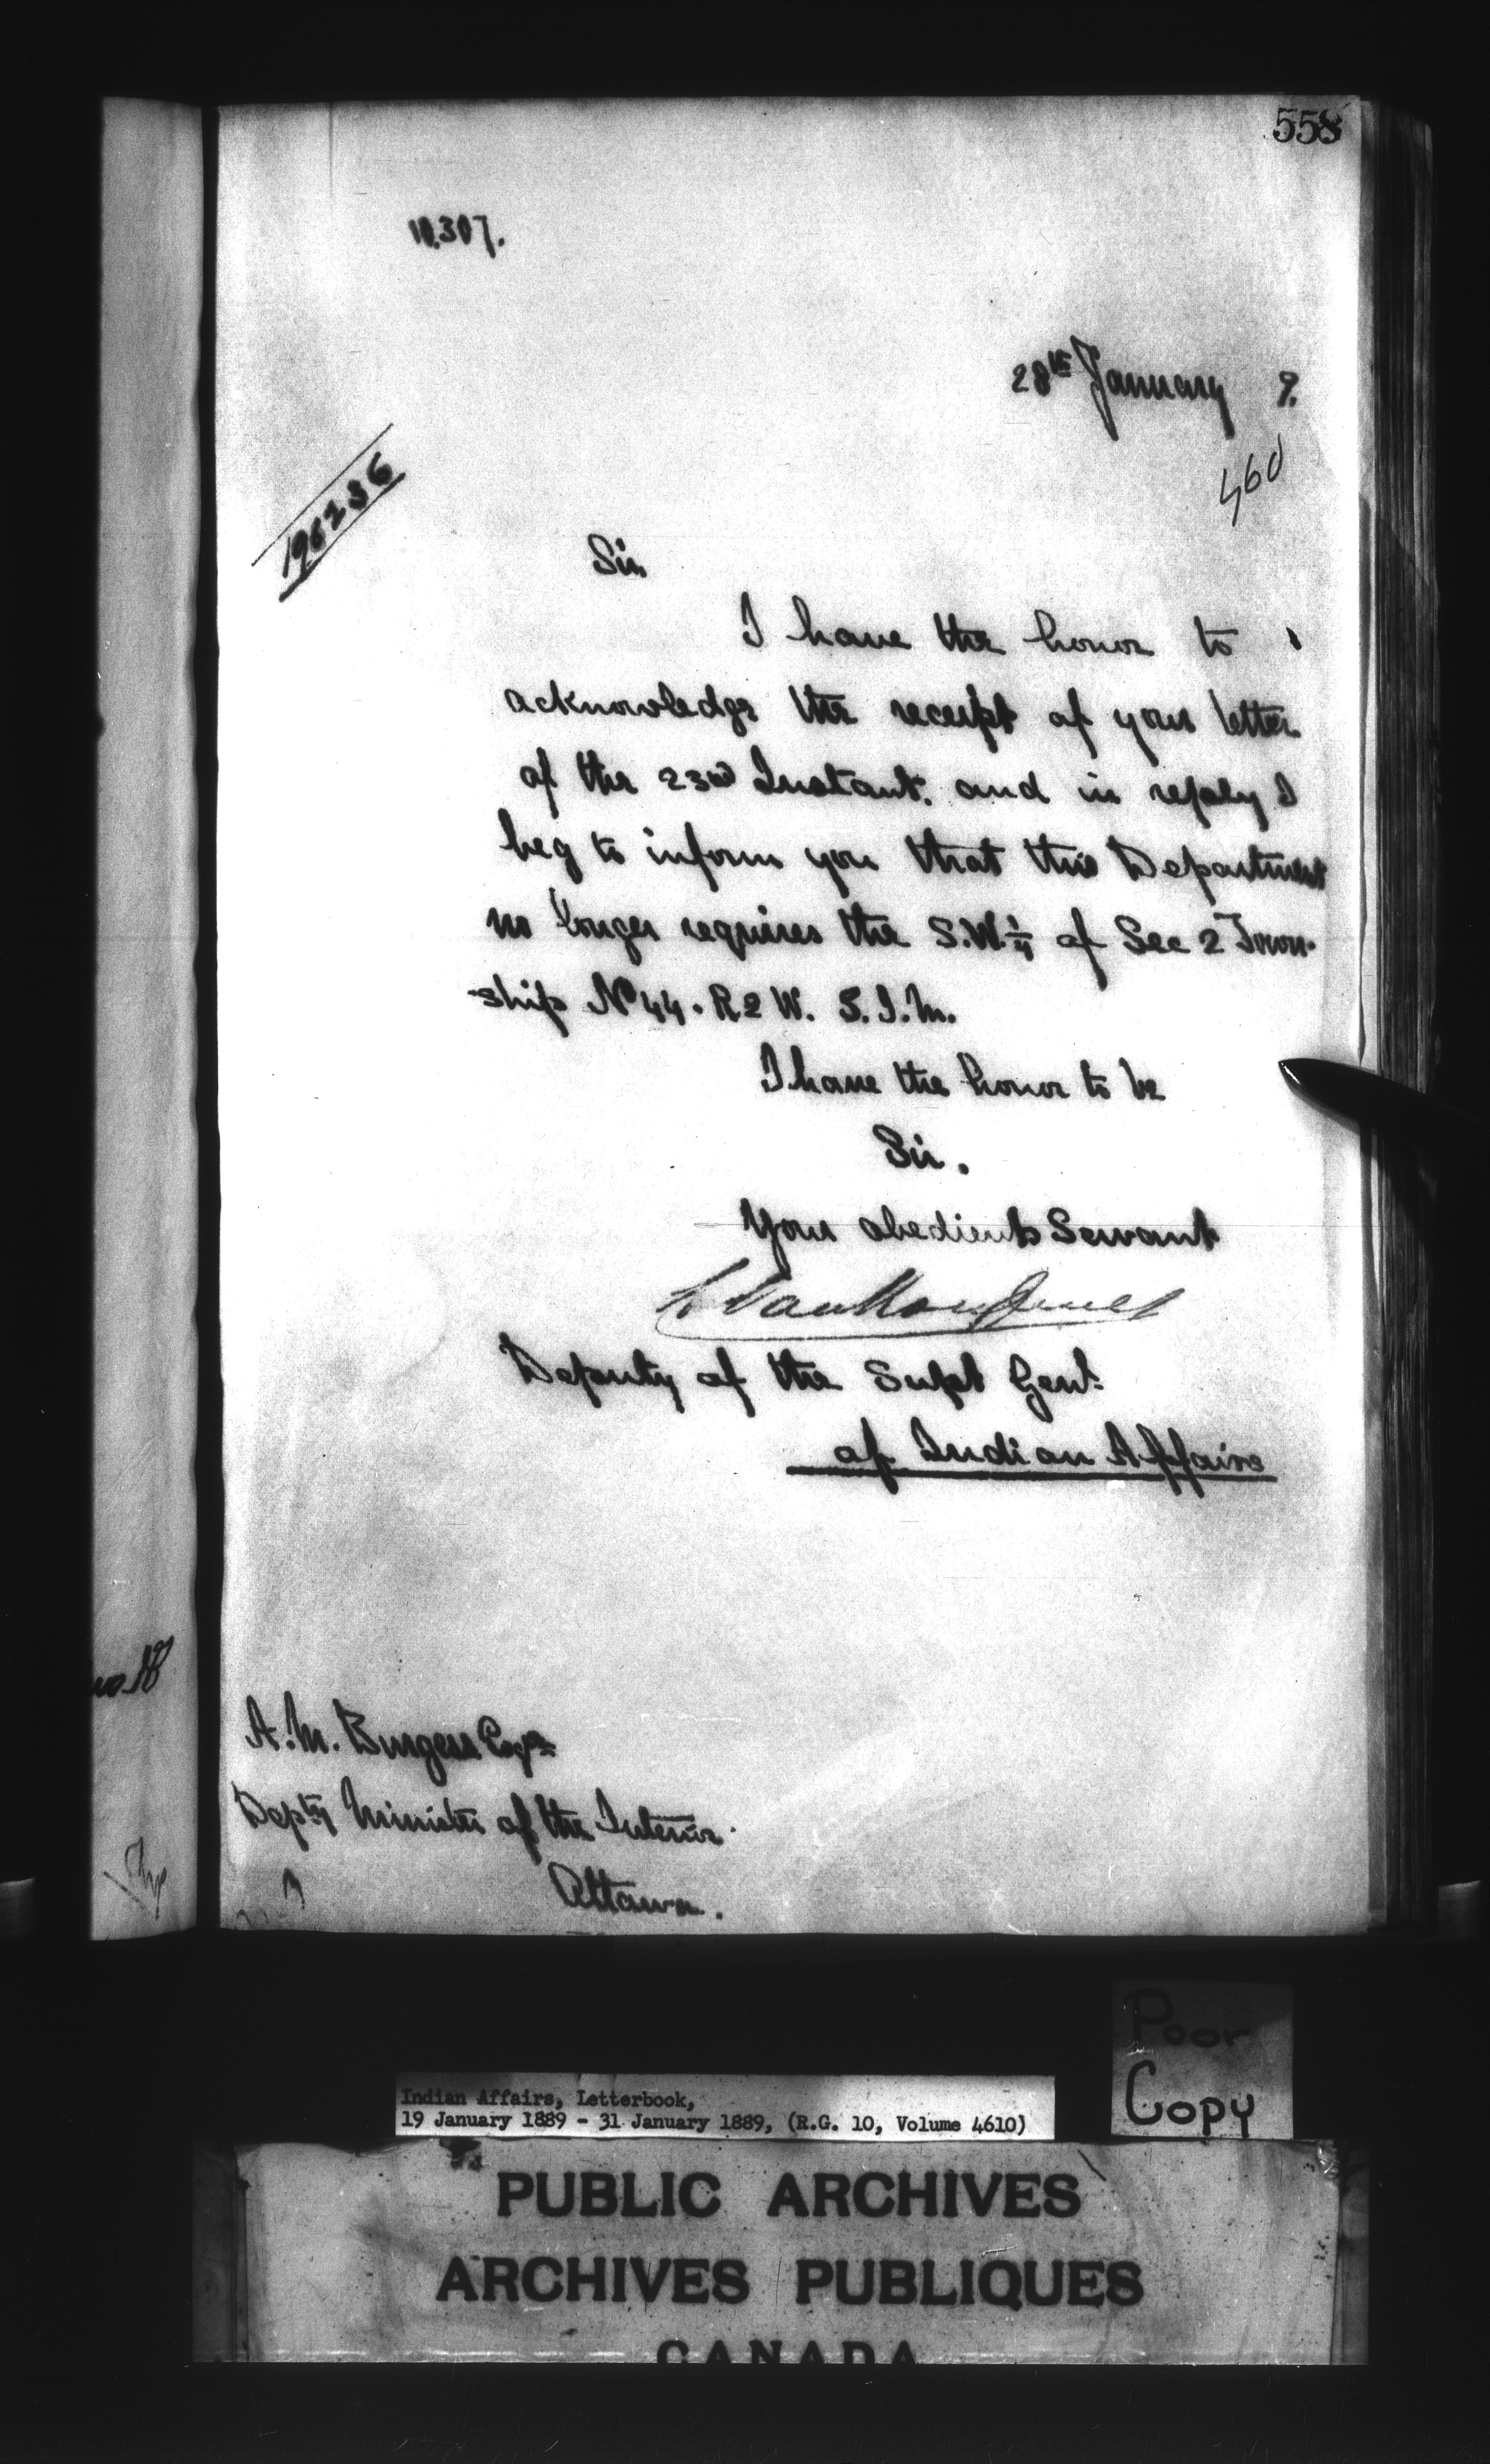 558
10.307.
28th January 9.
460
196236
Sir,
I have the honor to
acknowledge the receipt of your letter
of the 23rd Instant. and in reply I
beg to inform you that this Department
no longer requires the S.W. 1/4 of Sec 2 Town-
-ship No 44. R. 2 W. 3. I. M.
I have the honor to be
Sir.
Your obedient Servant
L VanKoughnet
Deputy of the Supt Genl.
of Indian Affairs
A. M. Burgess Esqre
Depty Minister of the Interior
Ottawa.
Poor
Copy
Indian Affairs, Letterbook,
19 January 1889 - 31 January 1889, (R.G. 10, Volume 4610)
PUBLIC ARCHIVES
ARCHIVES PUBLIQUES
CANADA